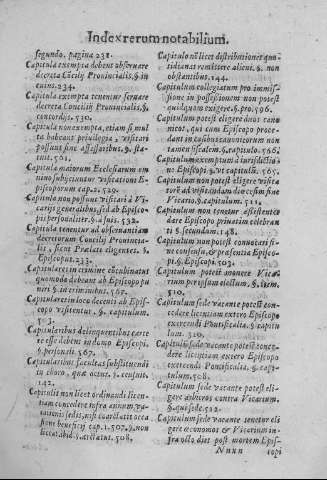 Index rerum notabilium.
segundo. pagina 238.
Capitula exempta debent obseruare
decreta Cōcilij Prouincialis. §. in
cuius. 234.
Capitula exempta tenentur seruare
decreta Concilij Prouincialis, §.
concordis. 530.
Capitula non exempta, etiam si mul
ta habeant priuilegia, visitari
possunt sine assessoribus. §. sta-
tus. 561.
Capitula maiorum Ecclesiarum om
nino subijciuntur visitationi E-
piscoporum cap. 2. 529.
Capitula non possunt visitari à Vi-
carijs generalibus, sed ab Episco-
pis personaliter. §. à suis. 532.
Capitula tenentur ad obseruantiam
decretorum Concilij Prouincia-
lis, sicut Praelati
Episcopus. 233.
Capitulares in crimine
quomodo debeant ab Episcopo pu
niri §. in criminibus. 567.
Capitulares in loco decenti ab Epis-
copo visitentur. §. capitulum.
503.
Capitularibus delinquentibus carce
re esse debent in domo Episcopi
§. personis. 567.
Capitularium facultas substituendi
in choro, quae actus. §. censuit.
142.
Capituli non licet ordinandi licen-
tiam concedere infra annum va-
cationis sedis, nisi coarctatur occa
sione beneficij cap. 1. 507. §. non
liceat, ibid. §. arctatus. 508.
Capitulo nō licet distributiones quo-
tidianas remittere alicui. §. non
obstantibus. 144.
Capitulum collegiatum pro immis-
sione in possessionem non potest
quidquam exigere. §. pro. 596.
Capitulum potest eligere duos cano
nicos, qui cum Episcopo proce-
dant in causibus canonicorum non
tamen fiscalem. §. capitulo. 566.
Capitulum exemptum à iurisdictio
ne Episcopi §. vt capitulū. 565.
Capitulum non potest eligere visita
torē ad visitandam dioecesim sine
Vicario. §. capitulum. 511.
Capitulum non tenetur assistentiā
dare Episcopo priuatim celebran
ti §. secundum. 148.
Capitulum non potest conuocari si-
ne consensu, & praesentia Episco-
pi. §. Episcopi. 503.
Capitulum potest amouere Vica-
rium per ipsum electum, §. item.
510.
Capitulum sede vacante potest con-
cedere licentiam extero Episcopo
exercendi Pontificalia, §. capitu
lum. 510.
Capitulum sede vacante potest conce-
dere licentiam extero Episcopo
exercendi Pontificalia. §. capi-
tulum. 508.
Capitulum sede vacante potest eli-
gere arbitros contra Vicarium.
§. quo sede. 512.
Capitulum sede vacante tenetur eli
gere oeconomos & Vicarium in-
fra octo dies post mortem Epis-
Nnnn copi